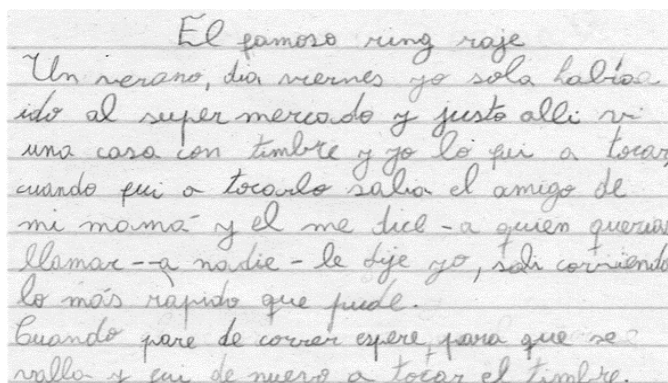 El famoso ring raje
Un verano, dia viernes yo sola había
ido al super mercado y justo alli vi
una casa con timbre y yo lo fui a tocar,
cuando fui a tocarlo salia el amigo de
mi mamá y el me dice - a quien querias
llamar -- a nadie - le dije yo, sali corriendo
lo más rápido que pude.
Cuando pare de correr espere para que se
valla y fui de nuevo a tocar el timbre